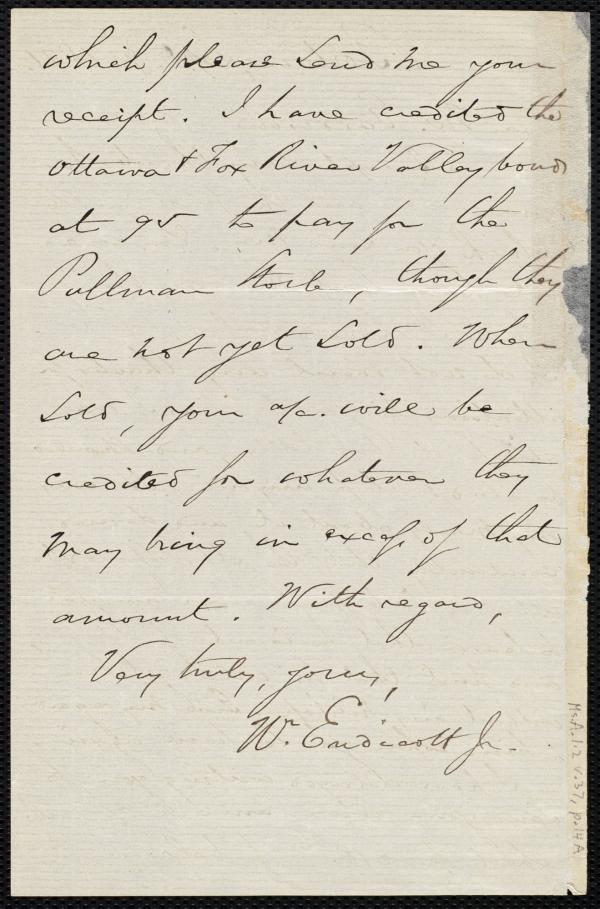 which please send me your
receipt. I have credited the
Ottawa & Fox River Valley bonds
at 95 to pay for the
Pullman Stock, though they
are not yet sold. When
sold, your a/c. will be
credited for whatever they
may bring in excess of that
amount. With regard,
Very truly, yours,
Wm. Endicott Jr.
Ms.A.1.2 v.37, p.14A